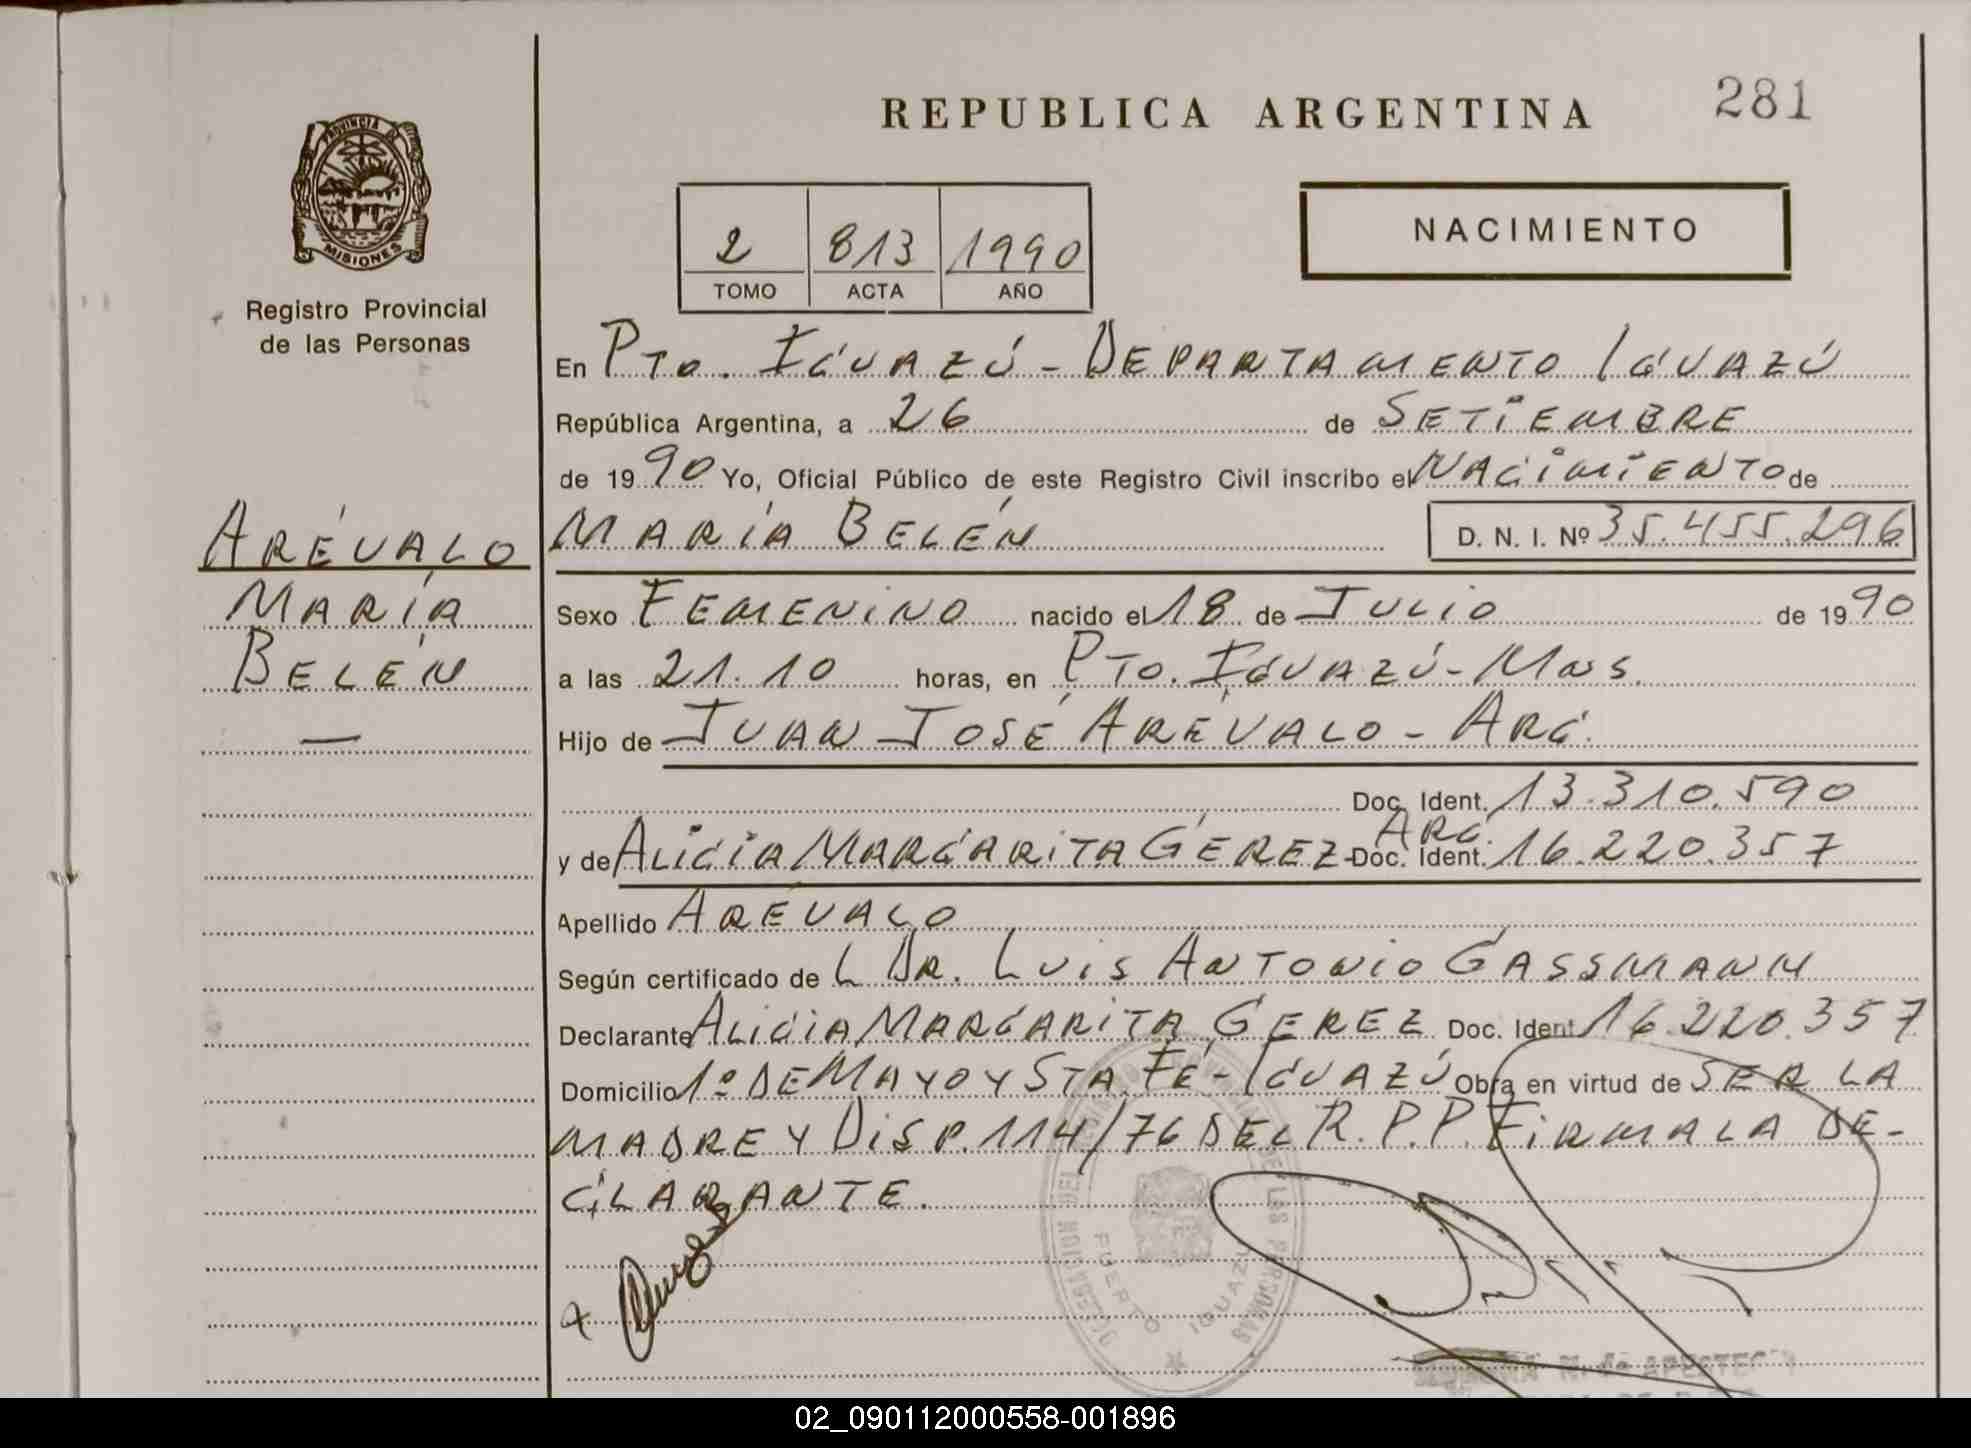 REPUBLICA ARGENTINA
281
PROVINCIA DE
MISIONES
Registro Provincial
de las Personas
2 813 1990
TOMO ACTA AÑO
NACIMIENTO
En Pto. IGUAZÚ - DEPARTAMENTO IGUAZÚ
República Argentina, a 26 de SETIEMBRE
de 1990 Yo, Oficial Público de este Registro Civil inscribo el NACIMIENTO de
ARÉVALO
MARÍA
BELÉN
—
MARÍA BELÉN D. N. I. Nº 35.455.296
Sexo FEMENINO nacido el 18 de JULIO de 1990
a las 21.10 horas, en PTO. IGUAZÚ - MNS.
Hijo de JUAN JOSÉ ARÉVALO - ARG.
Doc. Ident. 13.310.590
y de ALICIA MARGARITA GEREZ - ARG. Doc. Ident. 16.220.357
Apellido ARÉVALO
Según certificado de L DR. LUIS ANTONIO GASSMANN
Declarante ALICIA MARGARITA GEREZ Doc. Ident. 16.220.357
Domicilio 1º DE MAYO Y STA. FÉ - IGUAZÚ Obra en virtud de SER LA
MADRE Y DISP. 114/76 DEL R.P.P. FIRMA LA DE-
CLARANTE.
DELEGACION DEL REGISTRO PROVINCIAL DE LAS PERSONAS
PUERTO IGUAZU
02_090112000558-001896